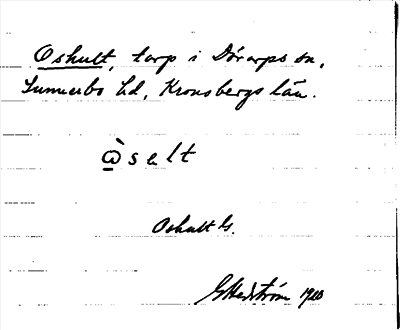 Oshult, torp i Dörarps sn,
Sunnerbo hd, Kronobergs län.
ὼselt
Oshult G.
G Hedström 1920